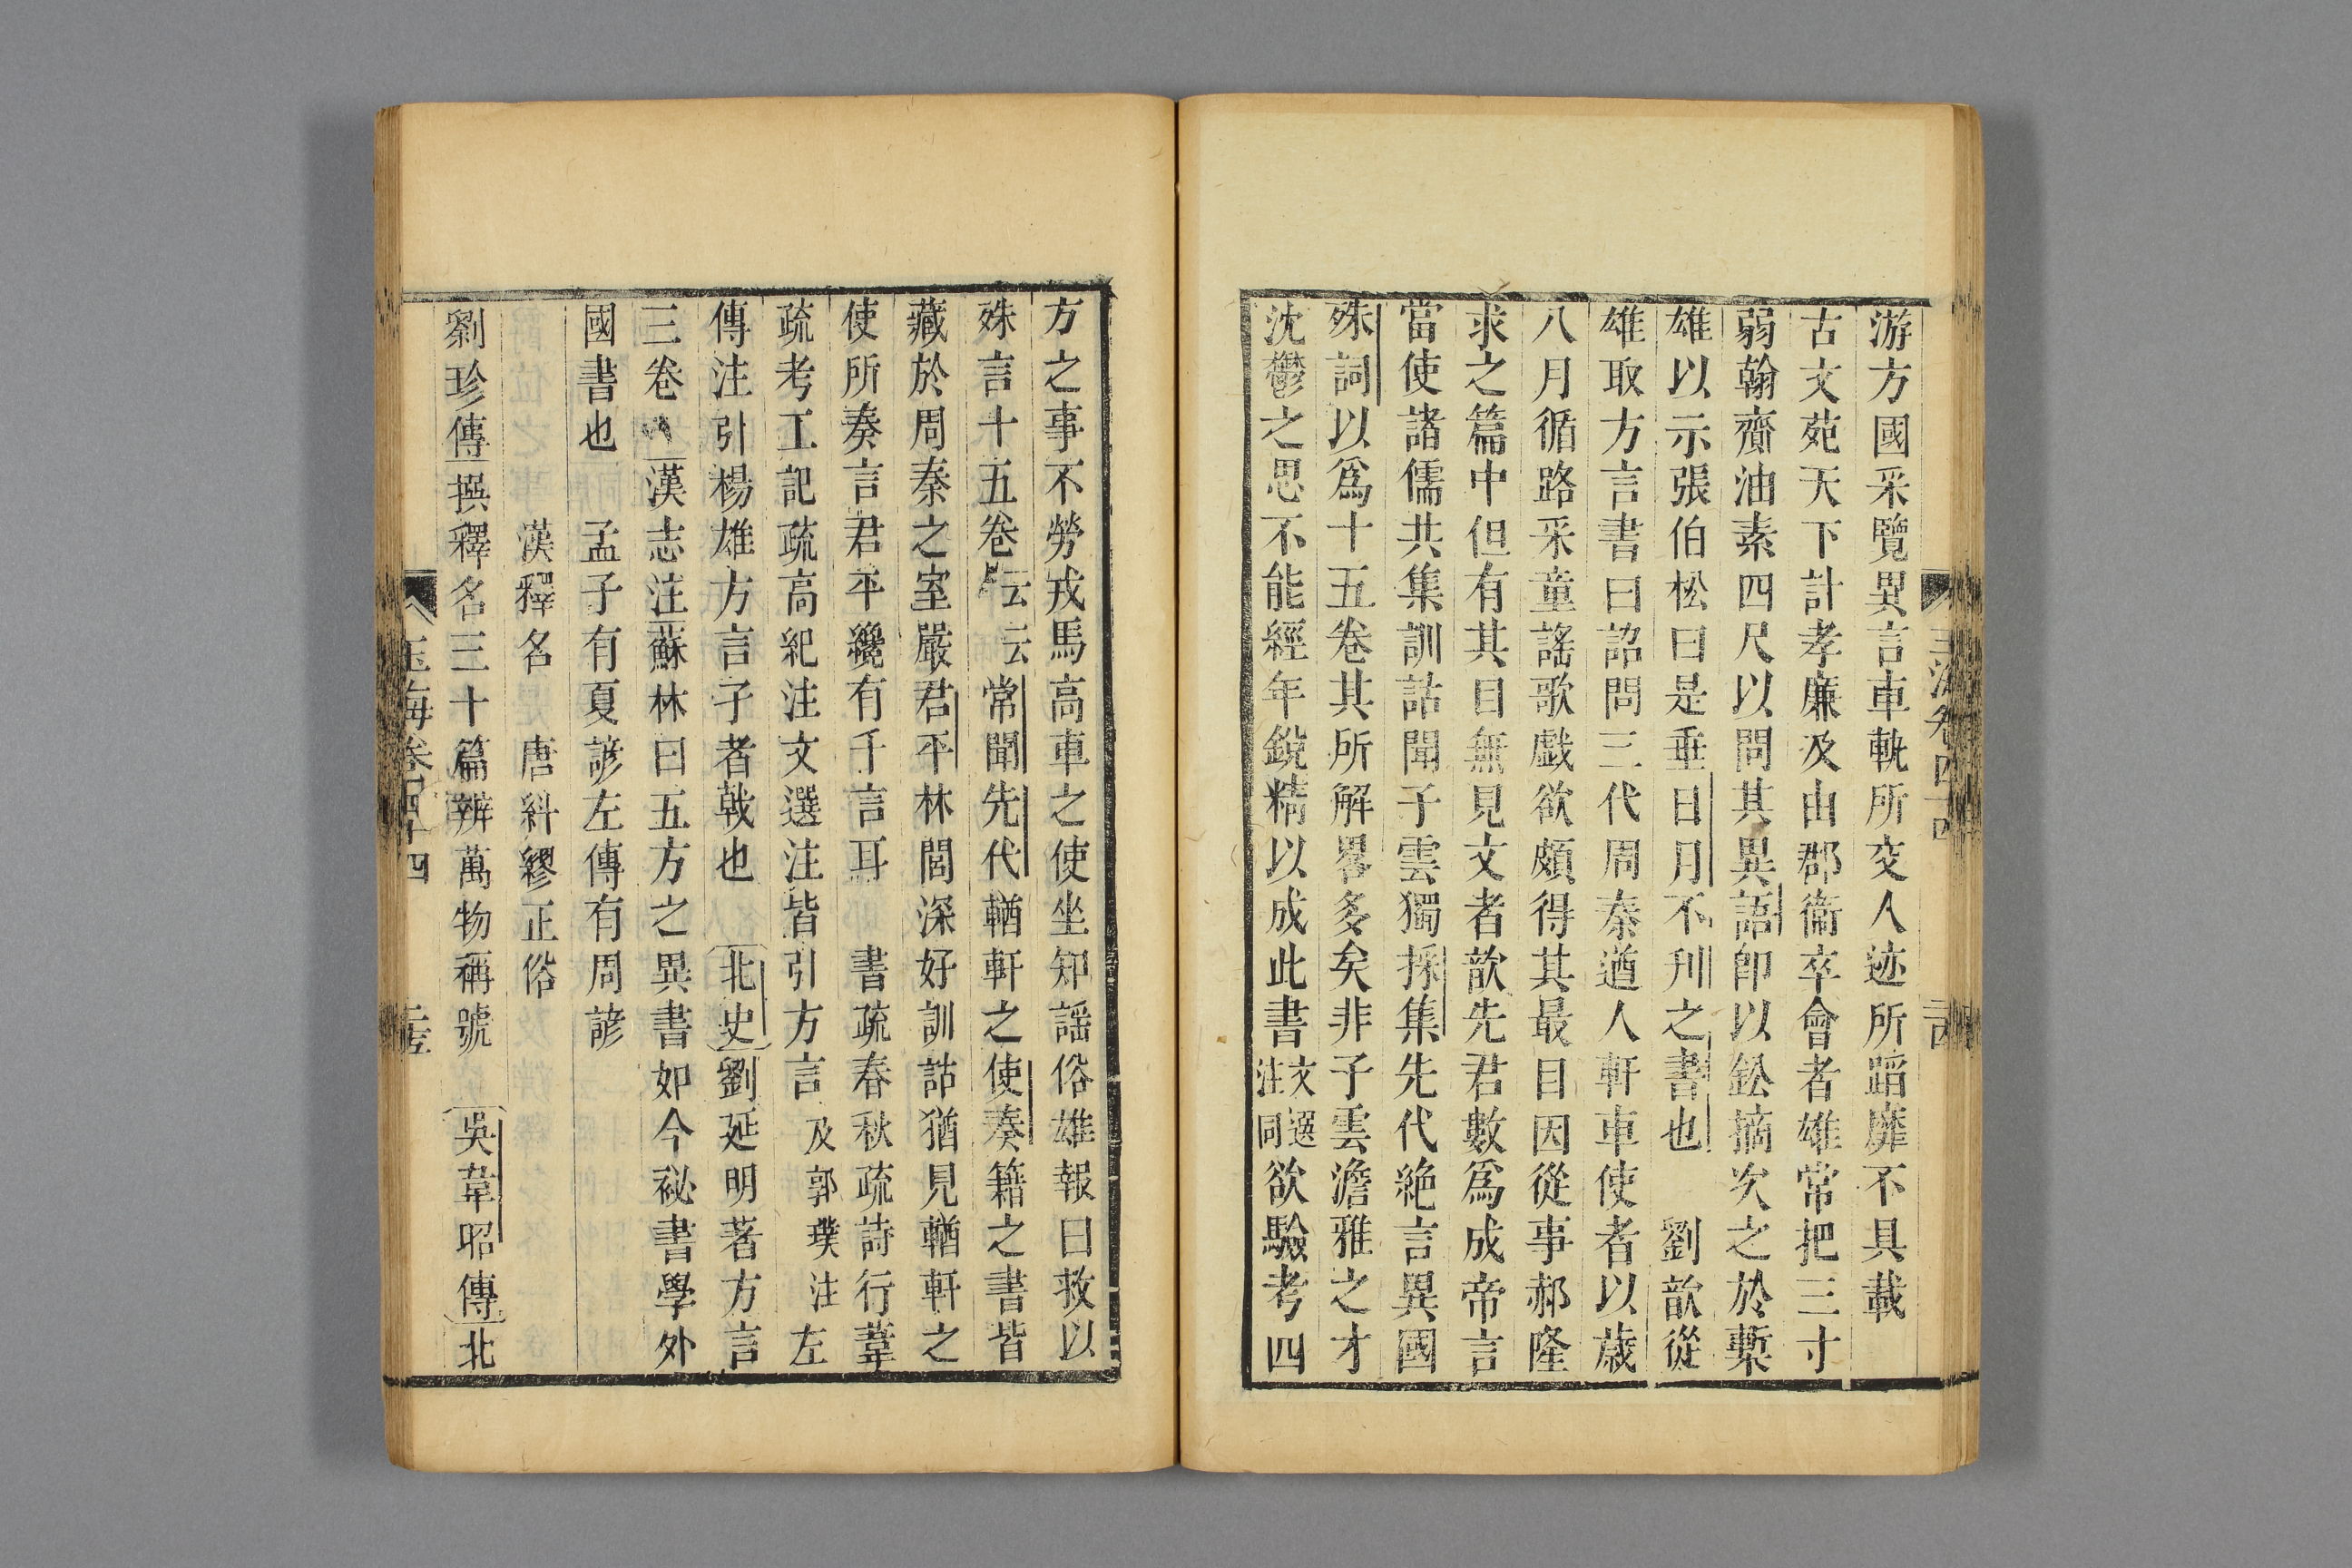 游方國采覽異言車軌所交人迹所蹈靡不具載
古文苑天下計孝廉及由郡衞卒會者雄常把三寸
弱翰齎油素四尺以問其異語即以鈆摘次之於槧
雄以示張伯松曰是垂日月不刋之書也　劉歆從
雄取方言書曰詔問三代周秦遒人軒車使者以歲
八月循路采童謠歌戲欲頗得其最目因從事郝隆
求之篇中但有其目無見文者歆先君數爲成帝言
當使諸儒共集訓詁聞子雲獨採集先代絶言異國
殊詞以爲十五卷其所解畧多矣非子雲澹雅之才
沈鬱之思不能經年銳精以成此書文選注同欲驗考四
方之事不勞戎馬高車之使坐知謡俗雄報曰敕以
殊言十五卷云云常聞先代輶軒之使奏籍之書皆
藏於周秦之室嚴君平林閭深好訓詁猶見輶軒之
使所奏言君平纔有千言耳　書疏春秋疏詩行葦
疏考工記疏高紀注文選注皆引方言及郭璞注左
傳注引楊雄方言孑者戟也　北史劉延明著方言
三卷　漢志注蘇林曰五方之異書如今祕書學外
國書也　孟子有夏諺左傳有周諺
漢釋名　唐糾繆正俗
劉珍傳撰釋名三十篇辨萬物稱號　吳韋昭傳北
玉海卷四十四